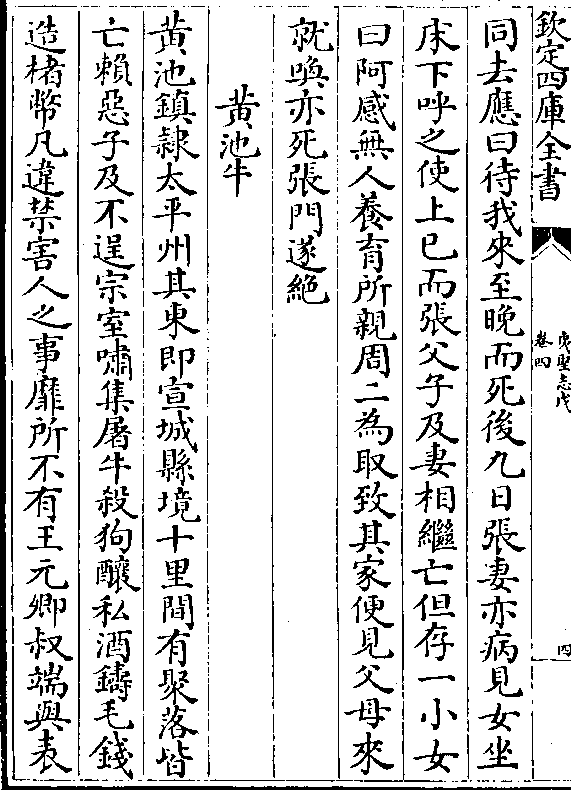 欽定四庫全書
夷堅志戊
卷四
四
同去應曰待我來至晚而死後九日張妻亦病見女坐
床下呼之使上已而張父子及妻相繼亡但存一小女
曰阿感無人養育所親周二為取致其家便見父母來
就喚亦死張門遂絶
黄池牛
黄池鎮隷太平州其東即宣城縣境十里間有聚落皆
亡賴惡子及不逞宗室嘯集屠牛殺狗釀私酒鑄毛錢
造楮幣凡違禁害人之事靡所不有王元卿叔端與表